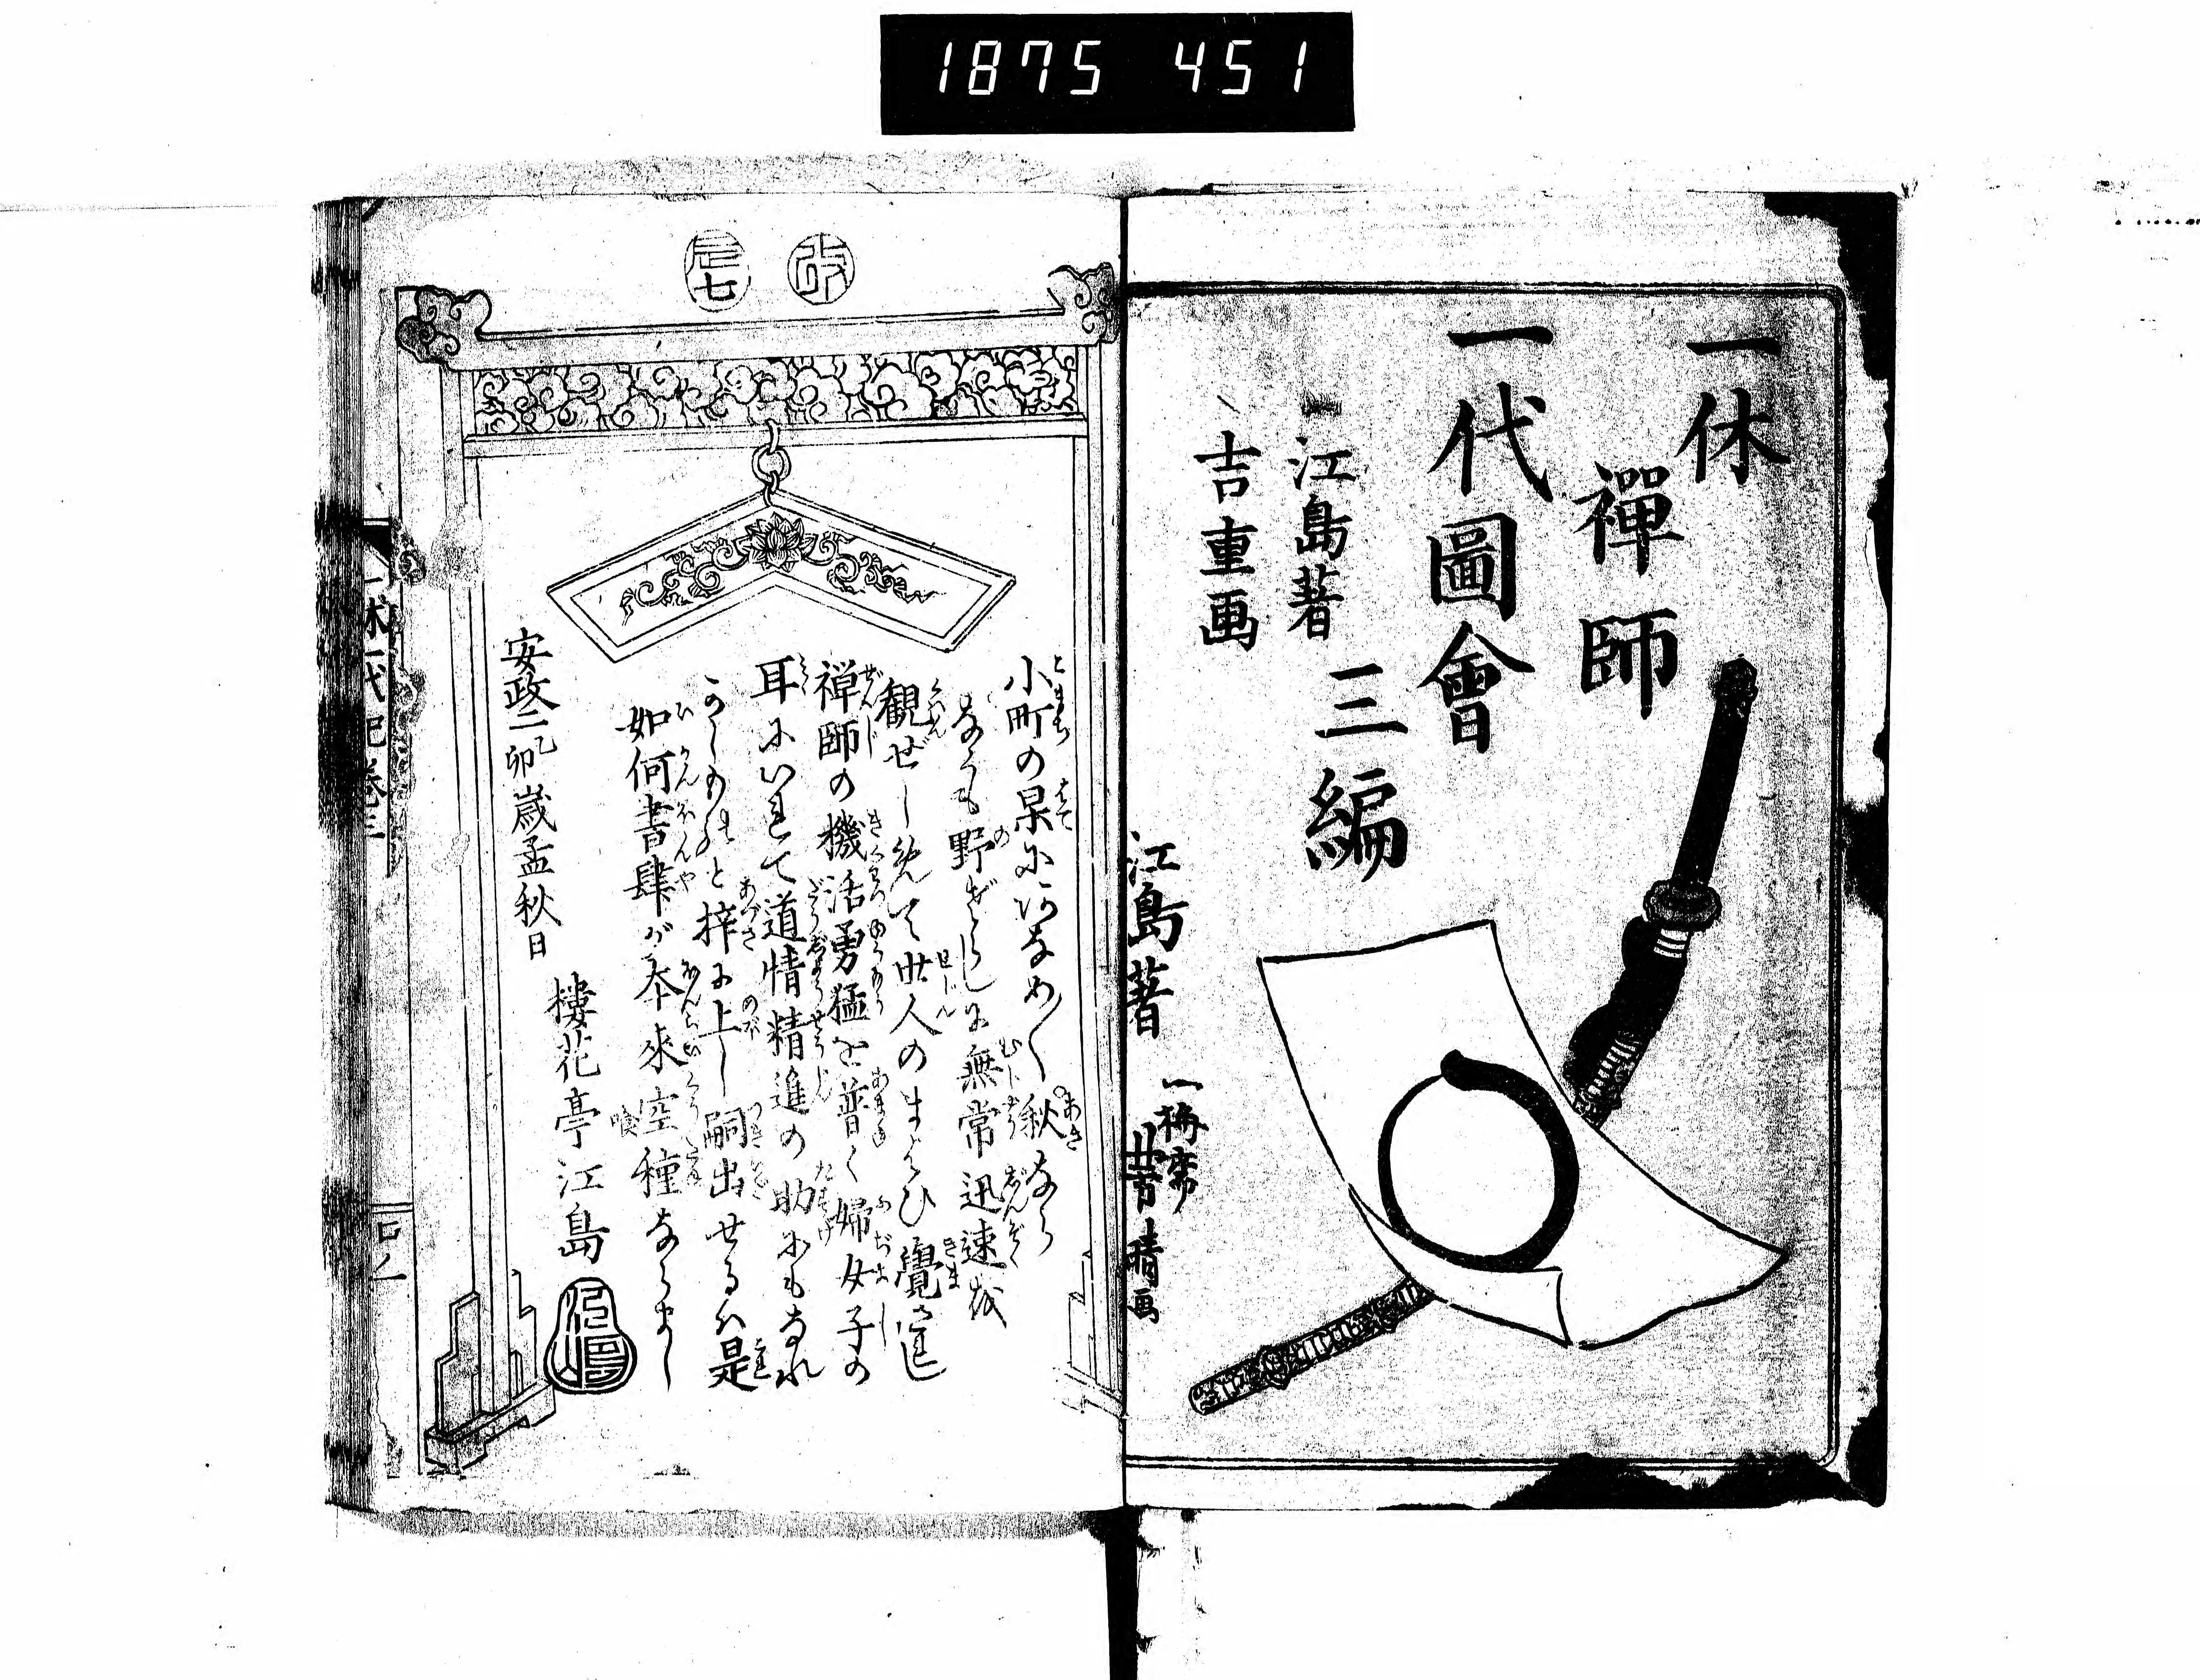 1875 451
一休
禪師
一代圖會
三編
江島著
吉重画
江島著
改
辰七
小町の果にハあなめ〳〵秋なら
なくも野ざらしに無常迅速を
観ぜしめて世人のまよひ覺さしむ
禅師の機活勇猛を普く婦女子の
耳にいれて道情精進の助にもなれ
かしものと梓に上し嗣出せるハ是
如何書肆が本來空種ならまし
安政二乙卯歳孟秋日
樓花亭江島
一休一代記巻三